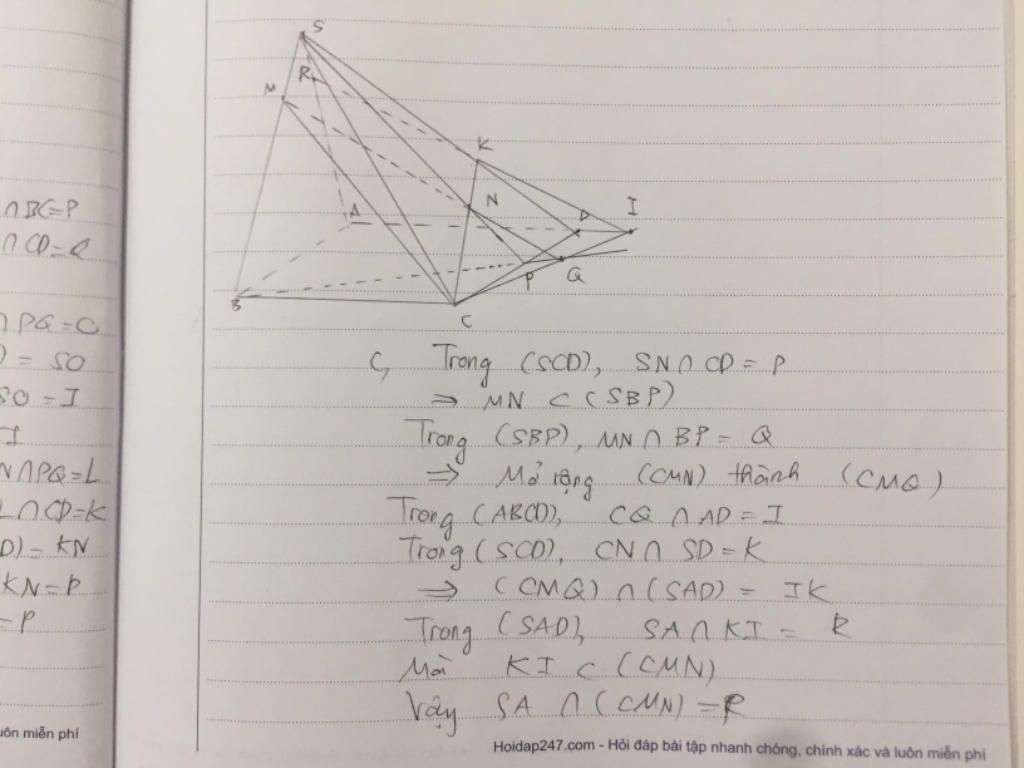 ∩ BC=P
∩ CD=Q
∩ PQ=O
) = SO
SO = I
I
N∩PQ=L
L∩CD=K
D)= KN
KN=P
=P
uôn miễn phí
S
R
M
K
N
A
D
I
B
P
Q
C
C, Trong (SCD), SN∩CD = P
⇒ MN ⊂ (SBP)
Trong (SBP), MN∩BP= Q
⇒ Mở rộng (CMN) thành (CMQ)
Trong (ABCD), CQ∩AD=I
Trong (SCD), CN∩SD=K
⇒ (CMQ)∩(SAD) = IK
Trong (SAD), SA∩KI = R
Mà KI ⊂ (CMN)
Vậy SA ∩(CMN)=R
Hoidap247.com - Hỏi đáp bài tập nhanh chóng, chính xác và luôn miễn phí